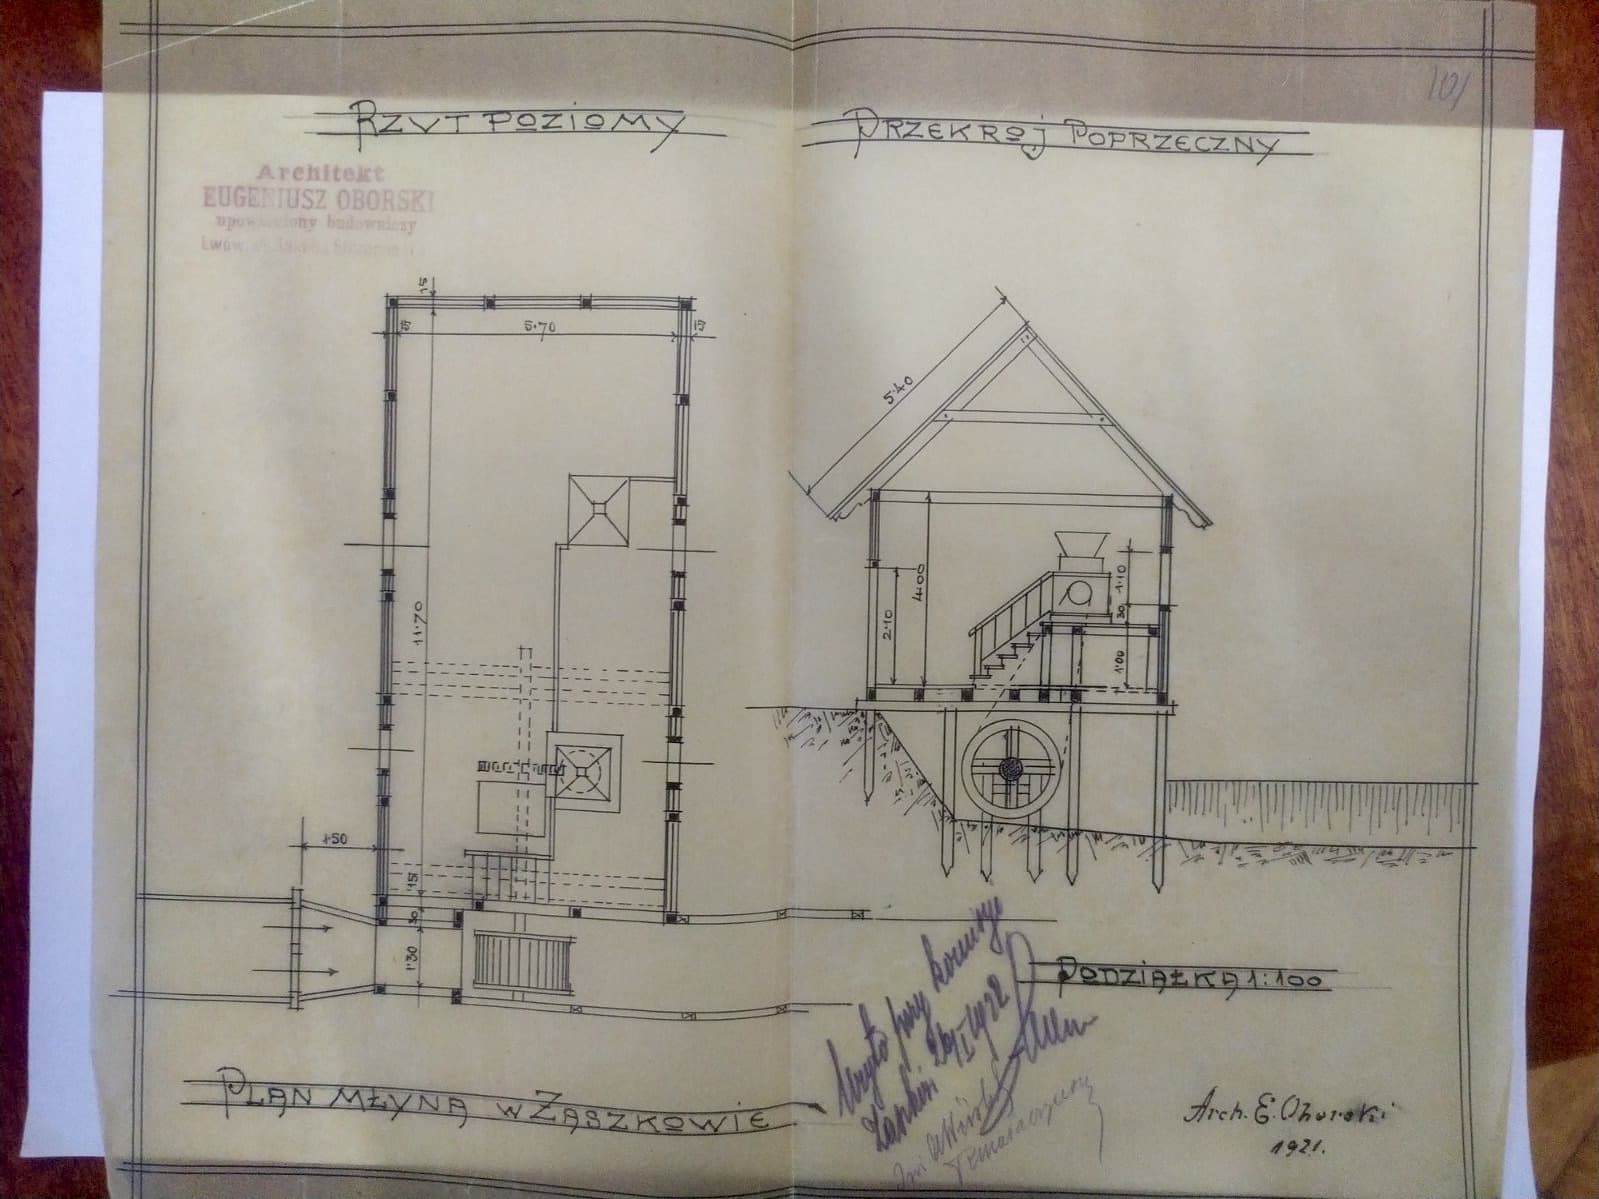 101
RZUT POZIOMY
PRZEKROJ POPRZECZNY
Architekt
EUGENIUSZ OBORSKI
upoważniony budowniczy
Lwów
15
15
5·70
15
5·40
11·70
2·10
4·00
1·10
30
1·00
1·50
15
30
1·30
PODZIAŁKA 1:100
Użyto przy komisyi
26/I 1922
PLAN MŁYNA W ZASZKOWIE
Arch. E. Oborski
1921.